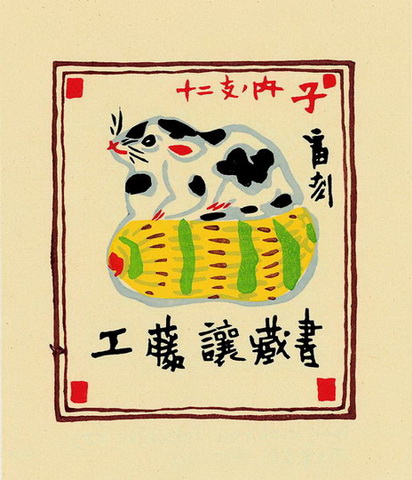 十二支ノ内 子
刻
工藤讓藏書